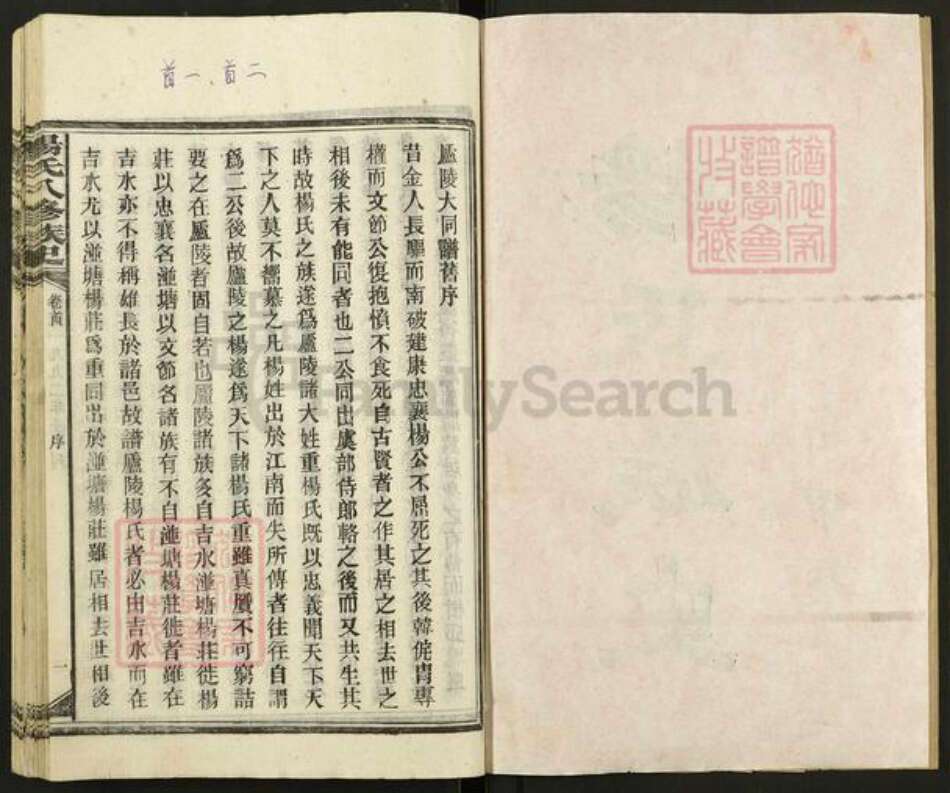 首一、首二
廬陵大同譜舊序
昔金人長驅而南破建康忠襄楊公不屈死之其後韓侂胄專
權而文節公復抱憤不食死自古賢者之作其居之相去世之
相後未有能同者也二公同出虞部侍郎輅之後而又共生其
時故楊氏之族遂爲廬陵諸大姓重楊氏既以忠義聞天下天
下之人莫不嚮慕之凡楊姓出於江南而失所傳者往往自謂
爲二公後故廬陵之楊遂爲天下諸楊氏重雖真贋不可窮詰
要之在廬陵者固自若也廬陵諸族多自吉水湴塘楊莊徙楊
莊以忠襄名湴塘以文節名諸族有不自湴塘楊莊徙者雖在
吉水亦不得稱雄長於諸邑故譜廬陵楊氏者必由吉水而在
吉水尤以湴塘楊莊爲重同出於湴塘楊莊雖居相去世相後
楊氏八修族史
卷首
序
一
猶他家譜學會收藏
FamilySearch